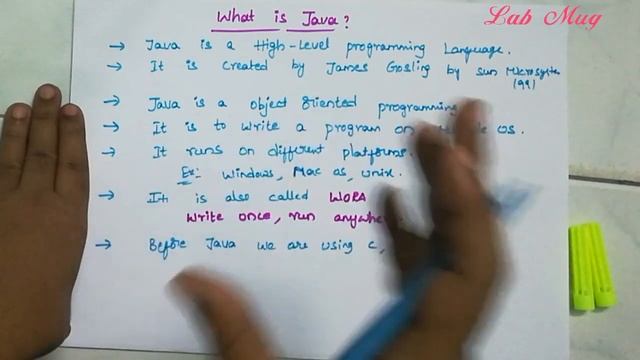 What is Java?
Lab Mug
→ Java is a High-level programming Language.
→ It is created by James Gosling by sun Microsystem
(1991)
→ Java is a object oriented programming
→ It is to write a program on os.
→ It runs on different platforms.
Ex: Windows, Mac os, unix.
→ It is also called WORA
Write once, run anywhere
→ Before Java we are using c,